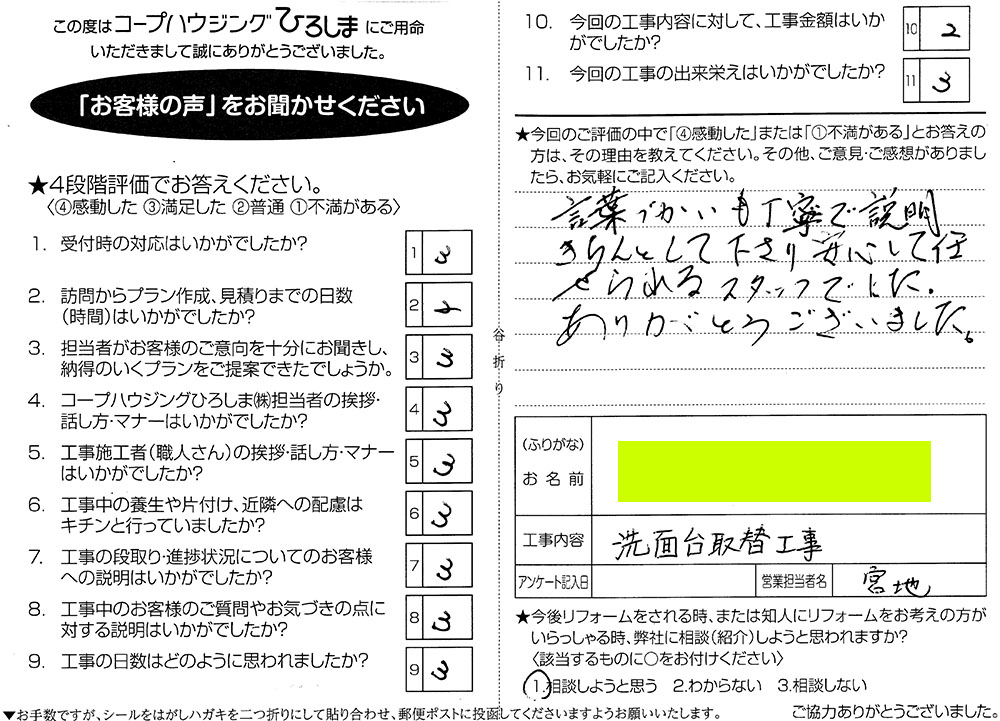 この度はコープハウジングひろしまにご用命
いただきまして誠にありがとうございました。
「お客様の声」をお聞かせください
★4段階評価でお答えください。
〈④感動した ③満足した ②普通 ①不満がある〉
1. 受付時の対応はいかがでしたか?
1 3
2. 訪問からプラン作成、見積りまでの日数
（時間）はいかがでしたか?
2 2
3. 担当者がお客様のご意向を十分にお聞きし、
納得のいくプランをご提案できたでしょうか。
3 3
4. コープハウジングひろしま㈱担当者の挨拶・
話し方・マナーはいかがでしたか?
4 3
5. 工事施工者（職人さん）の挨拶・話し方・マナー
はいかがでしたか?
5 3
6. 工事中の養生や片付け、近隣への配慮は
キチンと行っていましたか?
6 3
7. 工事の段取り・進捗状況についてのお客様
への説明はいかがでしたか?
7 3
8. 工事中のお客様のご質問やお気づきの点に
対する説明はいかがでしたか?
8 3
9. 工事の日数はどのように思われましたか?
9 3
▼お手数ですが、シールをはがしハガキを二つ折りにして貼り合わせ、郵便ポストに投函してくださいますようお願いいたします。
谷折り
10. 今回の工事内容に対して、工事金額はいか
がでしたか?
10 2
11. 今回の工事の出来栄えはいかがでしたか?
11 3
★今回のご評価の中で「④感動した」または「①不満がある」とお答えの
方は、その理由を教えてください。その他、ご意見・ご感想がありまし
たら、お気軽にご記入ください。
言葉づかいも丁寧で説明
きちんとして下さり安心して任
せられるスタッフでした。
ありがとうございました。
（ふりがな）
お名前
工事内容 洗面台取替工事
アンケート記入日 営業担当者名 宮地
★今後リフォームをされる時、または知人にリフォームをお考えの方が
いらっしゃる時、弊社に相談（紹介）しようと思われますか?
〈該当するものに○をお付けください〉
1.相談しようと思う 2.わからない 3.相談しない
ご協力ありがとうございました。